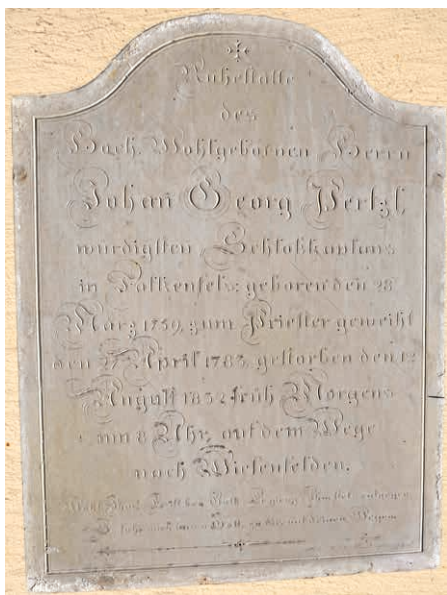 Ruhestätte
des
Hoch Wohlgebornen Herrn
Johan Georg Pertzl,
würdigsten Schloßkaplans
in Falkenfels: geboren den 28
März 1759, zum Priester geweiht
den April 1783, gestorben den 12
August 1832 früh Morgens
um 8 Uhr, auf dem Wege
nach Wiesenfelden.